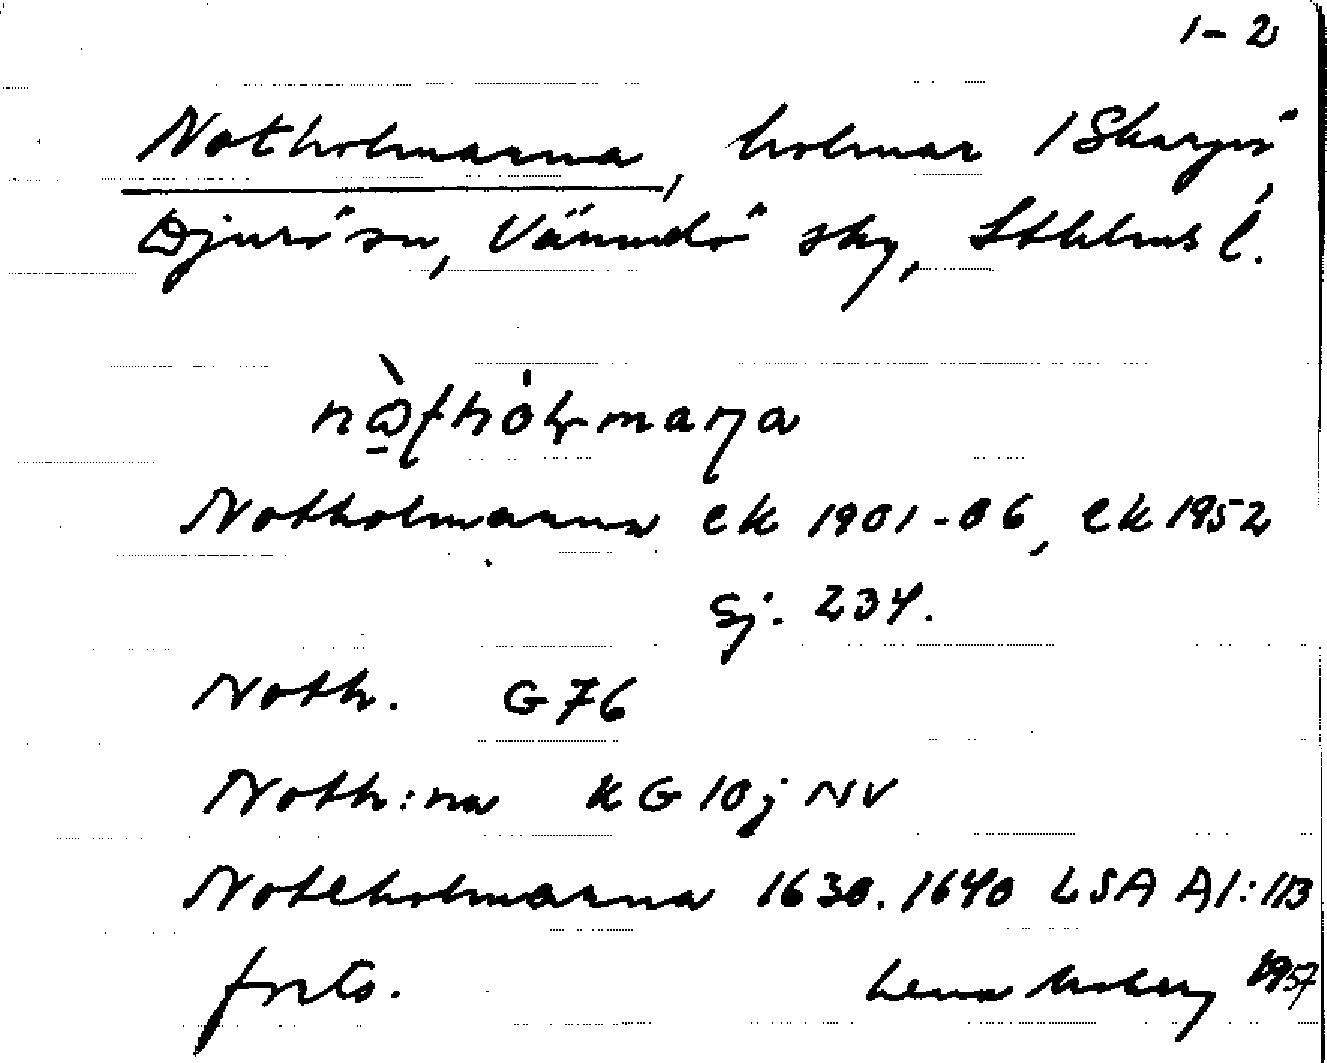 1-2
Notholmarna, holmar i Skargö,
Djurö sn, Värmdö sky, Stkhms l.
Notholmarna ek 1901-06, ek 1952
Sj. 234.
Noth. G 76
Noth:na KG 10j NV
Noteholmarna 1630. 1640 LSA A1:113
forts. Lena 1957